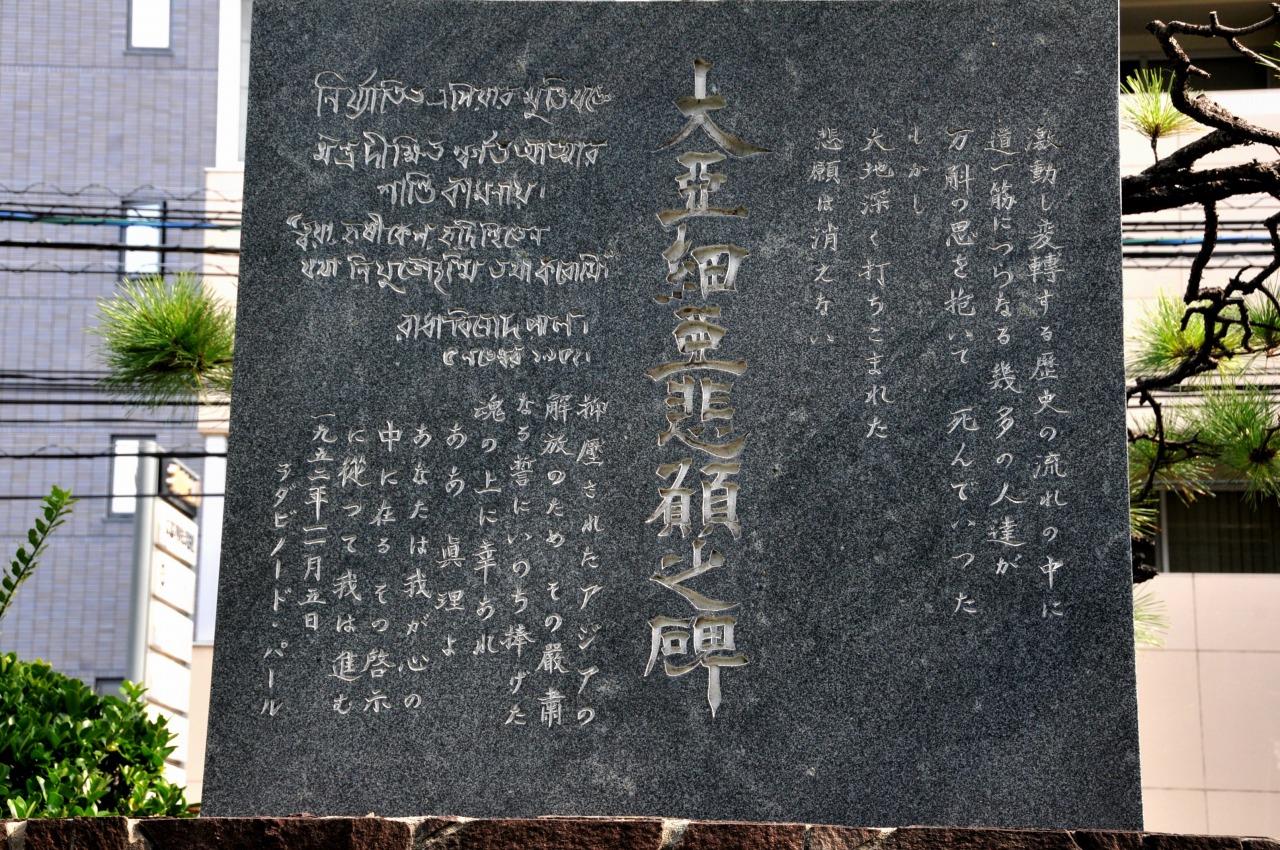 激動し変轉する歴史の流れの中に
道一筋につらなる幾多の人達が
万斛の思を抱いて 死んでいつた
しかし
大地深く打ちこまれた
悲願は消えない
大亜細亜悲願之碑
নির্য্যাতিত এশিয়ার মুক্তিযজ্ঞে
মন্ত্রদীক্ষিত স্বর্গত আত্মার
শান্তি কামনায়।
"ত্বয়া হৃষীকেশ হৃদিস্থিতেন
যথা নিযুক্তোহস্মি তথা করোমি"
রাধাবিনোদ পাল।
৫ নভেম্বর ১৯৫২।
抑壓されたアジアの
解放のため その嚴肅
なる誓にいのち捧げた
魂の上に幸あれ
ああ 眞理よ
あなたは我が心の
中に在る その啓示
に從つて我は進む
一九五二年一一月五日
ラダビノード・パール